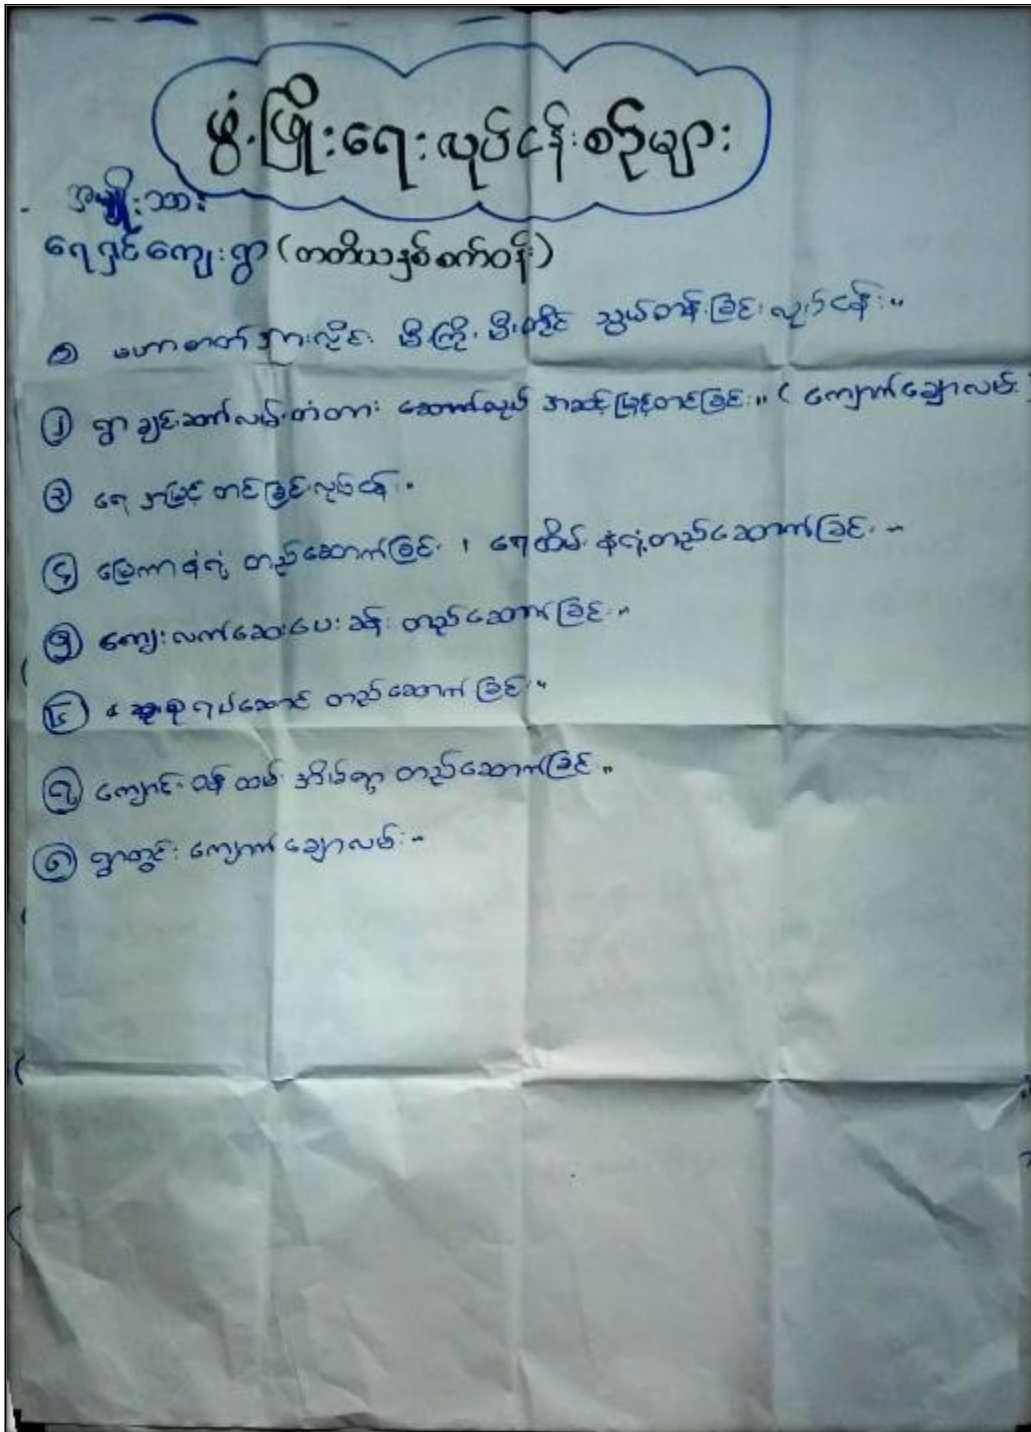 ဖွံ့ဖြိုးရေးလုပ်ငန်းစဉ်များ
အမျိုးသား
ရေရှင်ကျေးရွာ (တတိယနှစ်စက်ဝန်း)
၁ မဟာဓာတ်အားလိုင်း မီးကြိုး မီးတိုင် သွယ်တန်းခြင်းလုပ်ငန်း။
၂ ရွာချင်းဆက်လမ်းတံတား ဆောက်လုပ် အဆင့်မြှင့်တင်ခြင်း။ (ကျောက်ချောလမ်း)
၃ ရေ အမြင့် တင်ခြင်းလုပ်ငန်း။
၄ မြေကာနံရံ တည်ဆောက်ခြင်း ၊ ရေထိမ်းနံရံတည်ဆောက်ခြင်း။
၅ ကျေးလက်ဆေးပေးခန်း တည်ဆောက်ခြင်း။
၆ ရပ်ဆောင် တည်ဆောက်ခြင်း။
၇ ကျောင်းဝန်ထမ်းအိမ်ရာ တည်ဆောက်ခြင်း။
၈ ရွာတွင်း ကျောက်ချောလမ်း။